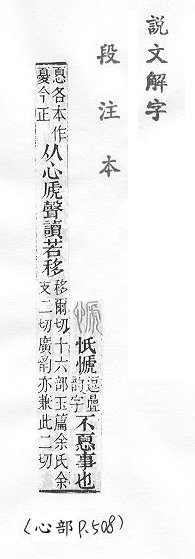 說文解字
段注本
㥴
忯㥴
逗疊
韵字
不𢝊事也
𢝊各本作
憂今正
从心虒聲讀若移
移爾切十六部玉篇余氏余
支二切廣韵亦兼此二切
(心部 P.508)